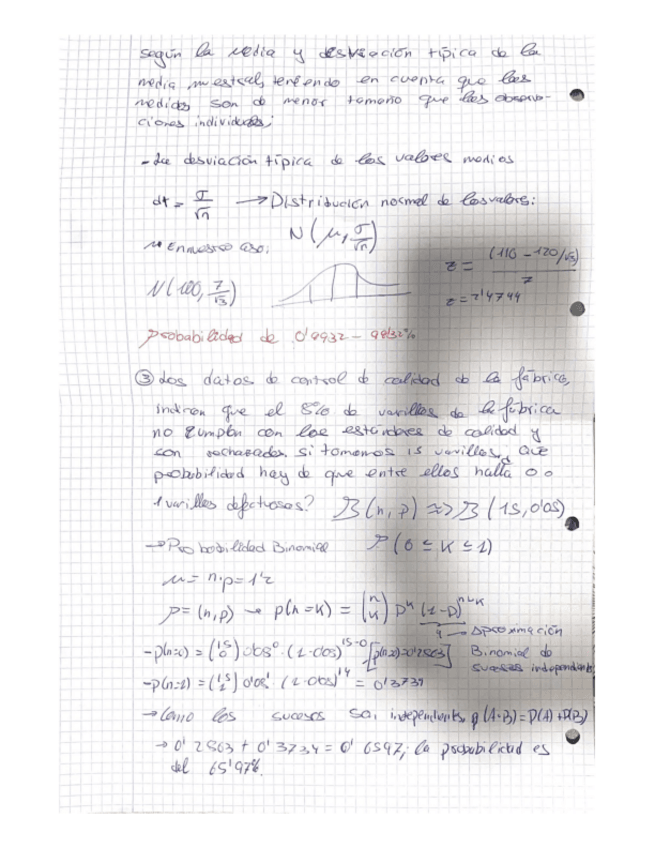 según la media y desviación típica de la
media muestral, teniendo en cuenta que las
medidas son de menor tamaño que las observa-
ciones individuales;
- La desviación típica de los valores medios
dt = σ/√n → Distribución normal de los valores:
N(μ, σ/√n)
En nuestro caso:
N(100, 7/√3)
z = (110 - 120/√3) / 7
z = 2'4744
Probabilidad de 0'9932 - 99'32%
③ Los datos de control de calidad de la fábrica,
indican que el 8% de varillas de la fábrica
no cumplen con los estándares de calidad y
son rechazadas. si tomamos 15 varillas, que
probabilidad hay de que entre ellos halla 0 o
1 varillas defectuosas? B(n, p) ≈> B(15, 0'08)
→ Probabilidad Binomial P(0 ≤ K ≤ 1)
μ = n·p = 1'2
p = (n, p) → p(n = K) = (n K) p^K (1 - p)^n-K
→ Aproximación
Binomial de
sucesos independientes
- p(n=0) = (15 0) 0'08^0 · (1 - 0'08)^15-0 [p(n=0) = 0'2863]
- p(n=1) = (15 1) 0'08^1 (1 - 0'08)^14 = 0'3734
→ Como los sucesos son independientes p(A·B) = P(A) + P(B)
→ 0'2863 + 0'3734 = 0'6597, la probabilidad es
del 65'97%.